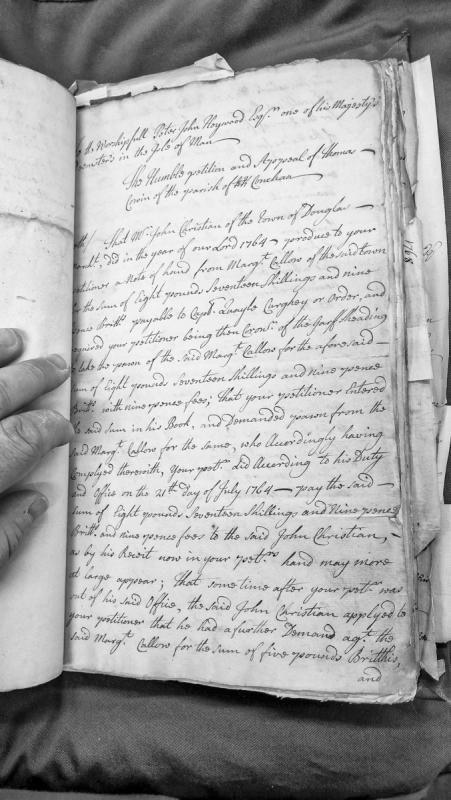 the Worshipfull Peter John Heywood Esqr. one of his Majesty's
Deemsters in the Isle of Man
The Humble petition and Appeal of Thomas —
Cowin of the parish of Kk Conchan
eth/ That Mr. John Christian of the Town of Douglas —
Marcht; did in the year of our Lord 1764 — produce to your
petitioner a Note of hand from Margt. Callow of the said town
for the sum of Eight pounds Seventeen Shillings and nine
pence Brittt. payable to Capt. Quayle Curghey or Order, and
required your petitioner being then Coronr. of the Garff Sheading
to take the pawn of the said Margt. Callow for the aforesaid —
sum of Eight pounds Seventeen Shillings and nine pence
Brittt. with nine pence fees; That your petitioner Entered
the said sum in his Book, and Demanded pawn from the
said Margt. Callow for the same, who Accordingly having
Complyed therewith, your petr. did According to his Duty
and Office on the 21th Day of July 1764 — pay the said —
sum of Eight pounds Seventeen Shillings and Nine pence
Brittt. and nine pence fees to the said John Christian, —
as by his Receit now in your petrs. hand may more
at large appear; That some time after your petr. was
out of his said Office, the said John Christian applyed to
your petitioner that he had a further Demand agt. the
said Margt. Callow for the sum of five pounds Brittish,
and
1768